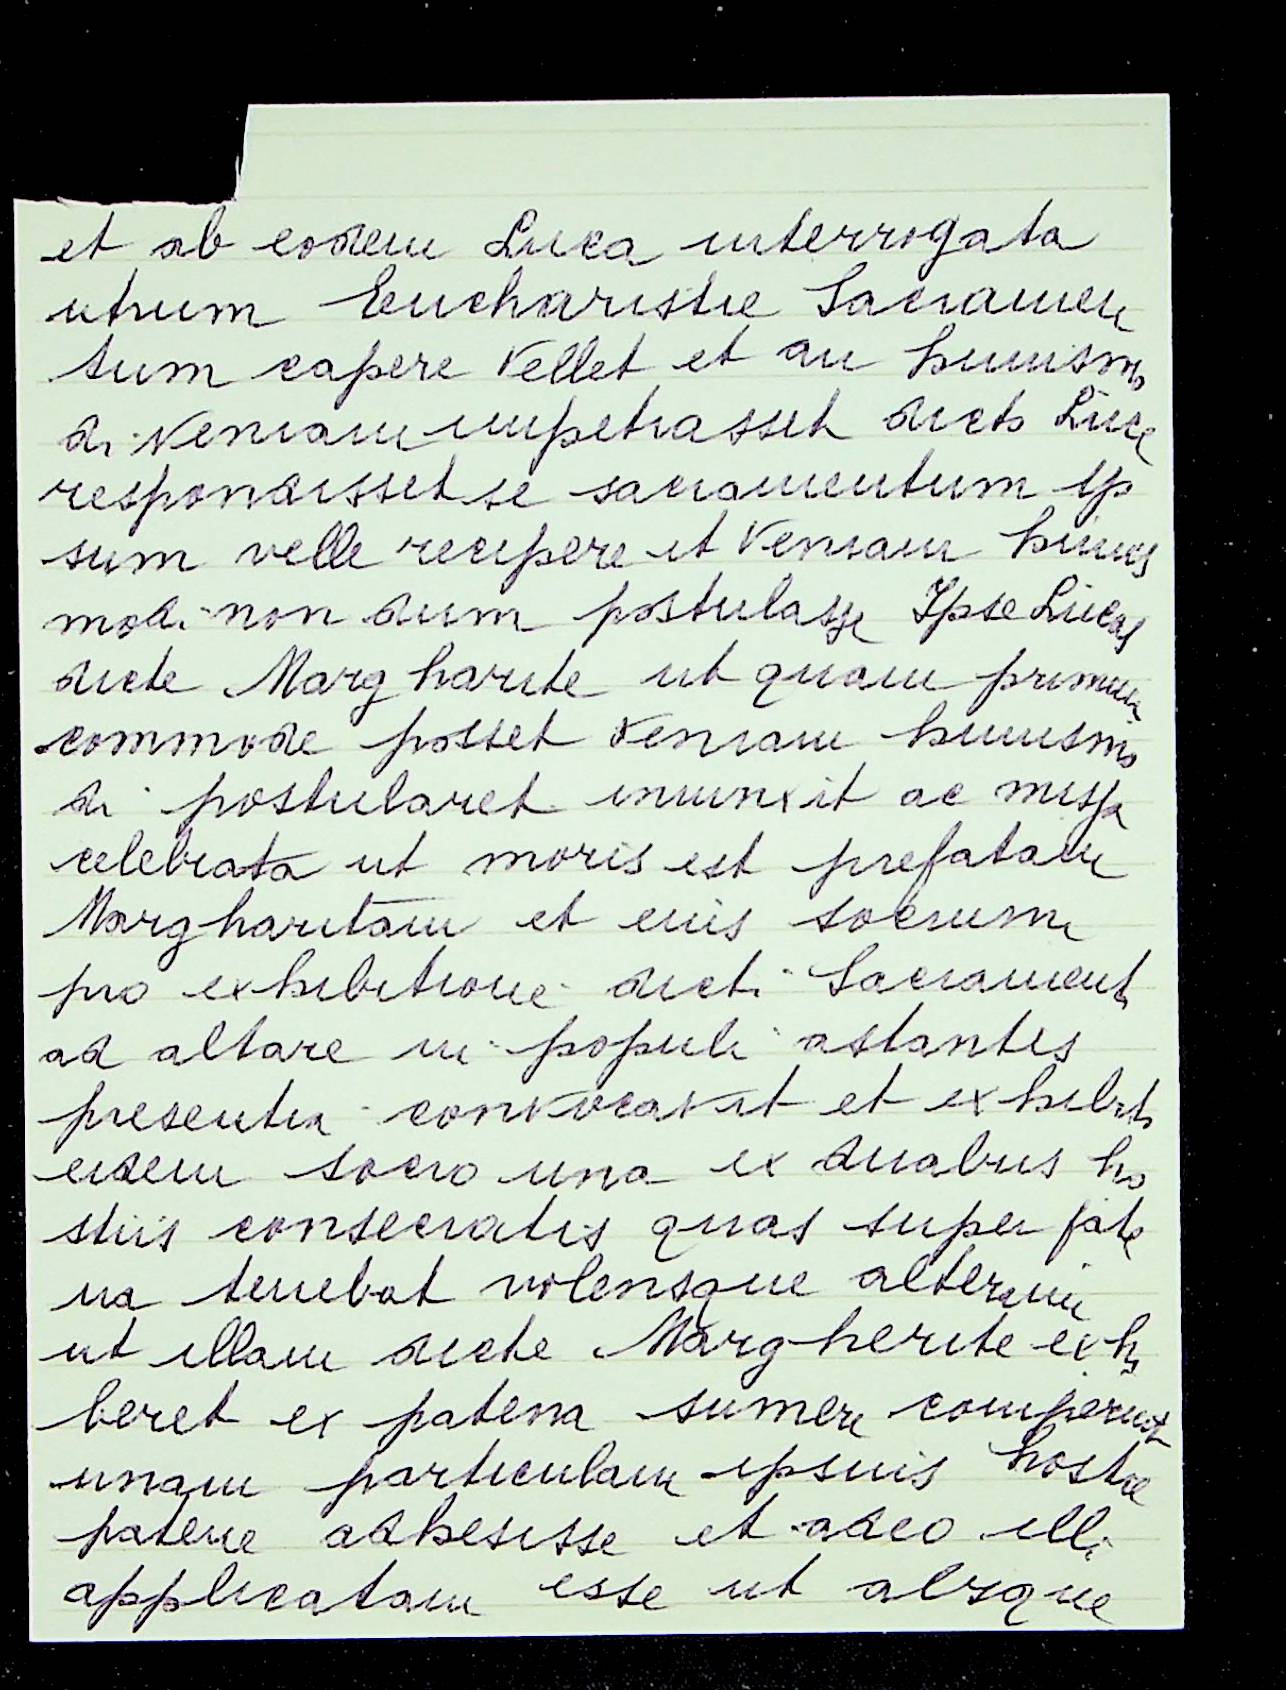 et ab eodem Luca interrogata
utrum Eucharistie Sacramen
tum capere vellet et an huiusmo
di veniam impetrasset dicto Luce
respondisset se sacramentum ip
sum velle recipere et veniam huius
modi non dum postulasse Ipse Lucas
dicte Margharite ut quam primum
commode posset veniam huiusmo
di postularet iniunxit ac missa
celebrata ut moris est prefatam
Margharitam et eius socrum
pro exhibitione dicti Sacramenti
ad altare in populi astantis
presentia convocavit et exhibita
eidem socro una ex duabus ho
stiis consecratis quas super pate
na tenebat volensque alteram
ut illam dicte Margherite exhi
beret ex patena sumere comperuit
unam particulam ipsius hostie
patene adhesisse et adeo illi
applicatam esse ut absque